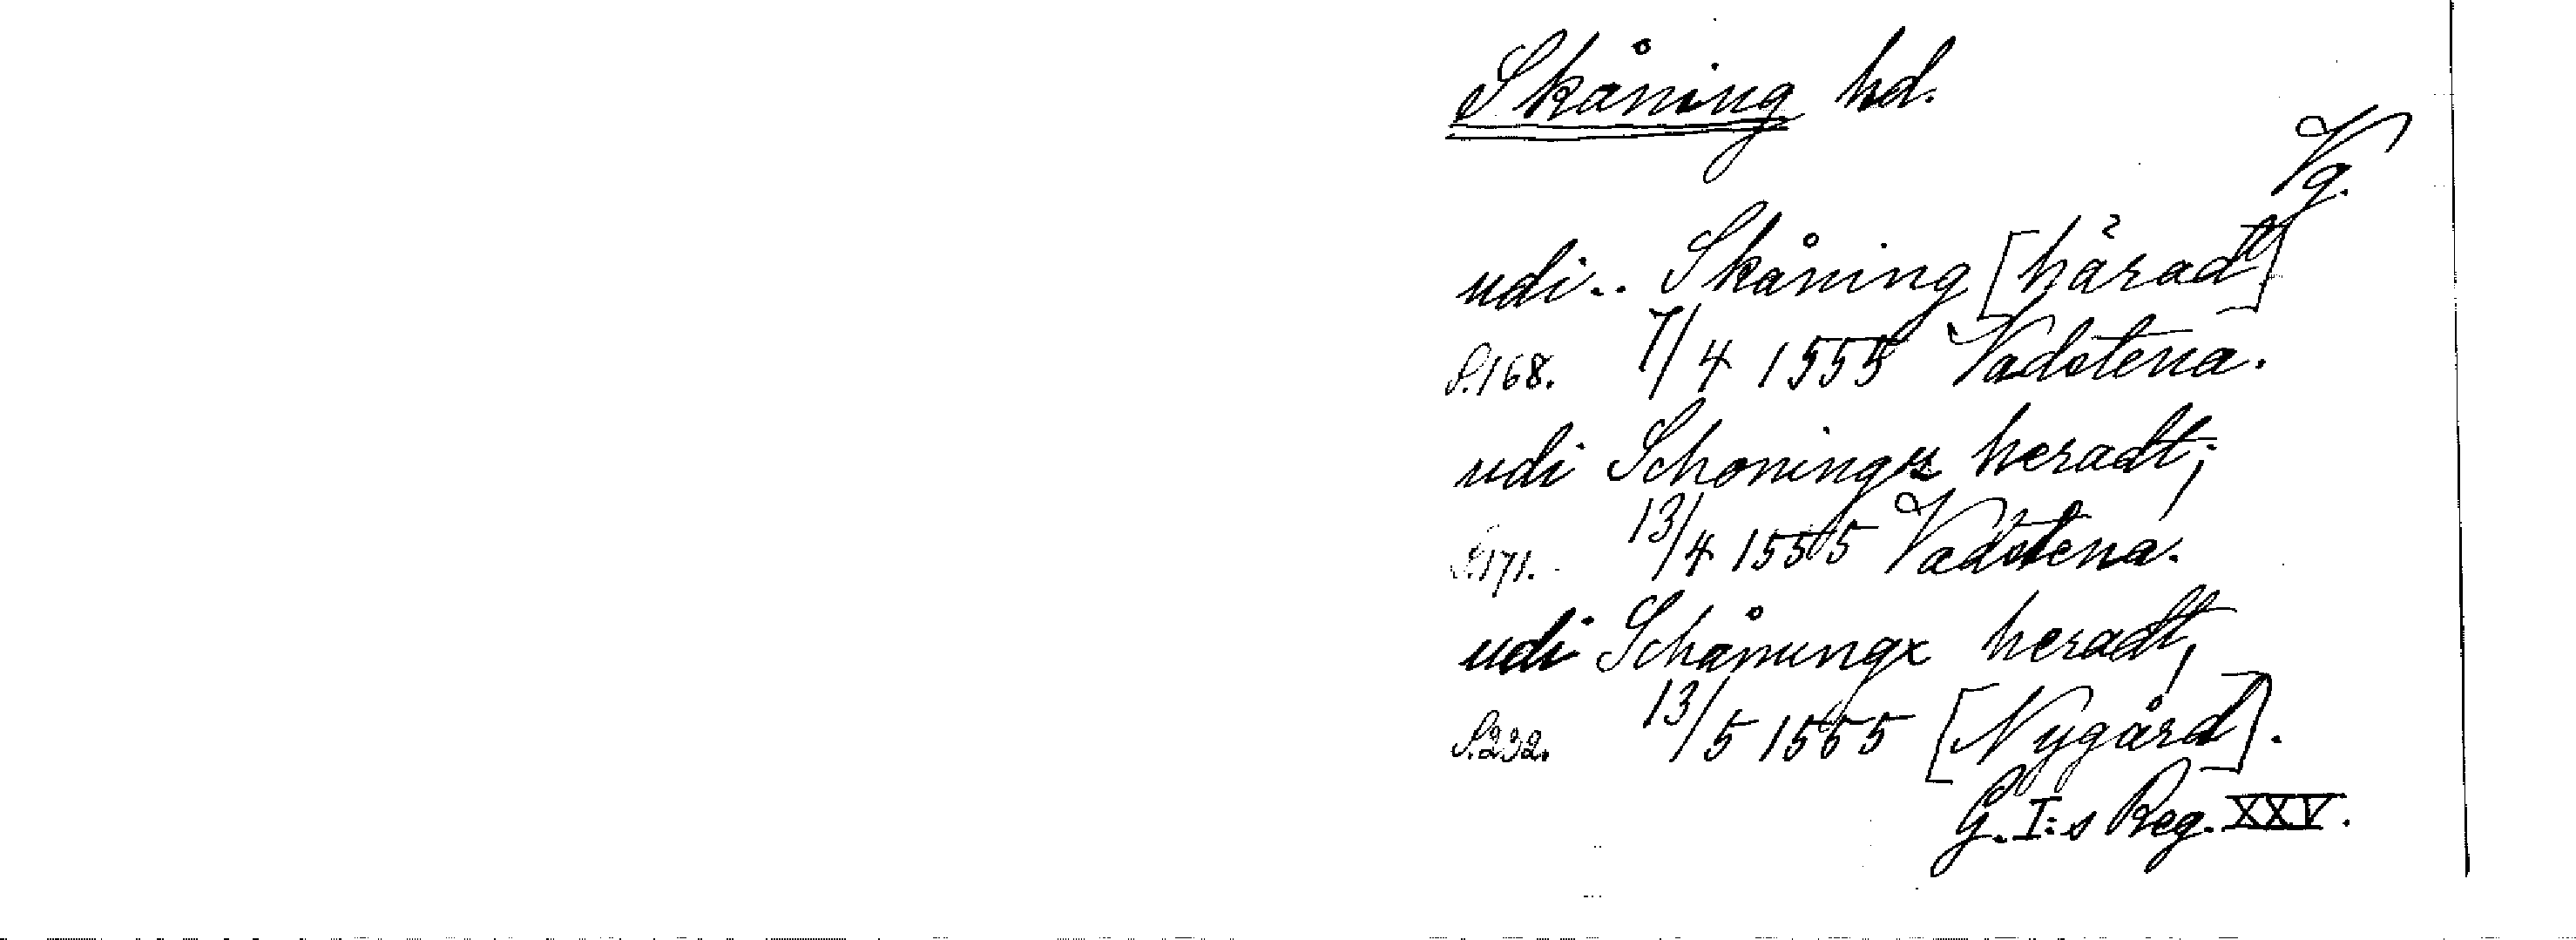 Skåning hd.
Vg.
udi.. Skåning [häradt]
S.168. 7/4 1555 Vadstena.
udi Schonings heradt;
S.171. 13/4 1555 Vadstena.
udi Schåningx heradt,
S.232. 13/5 1555 [Nygård].
G. I:s Reg. XXV.